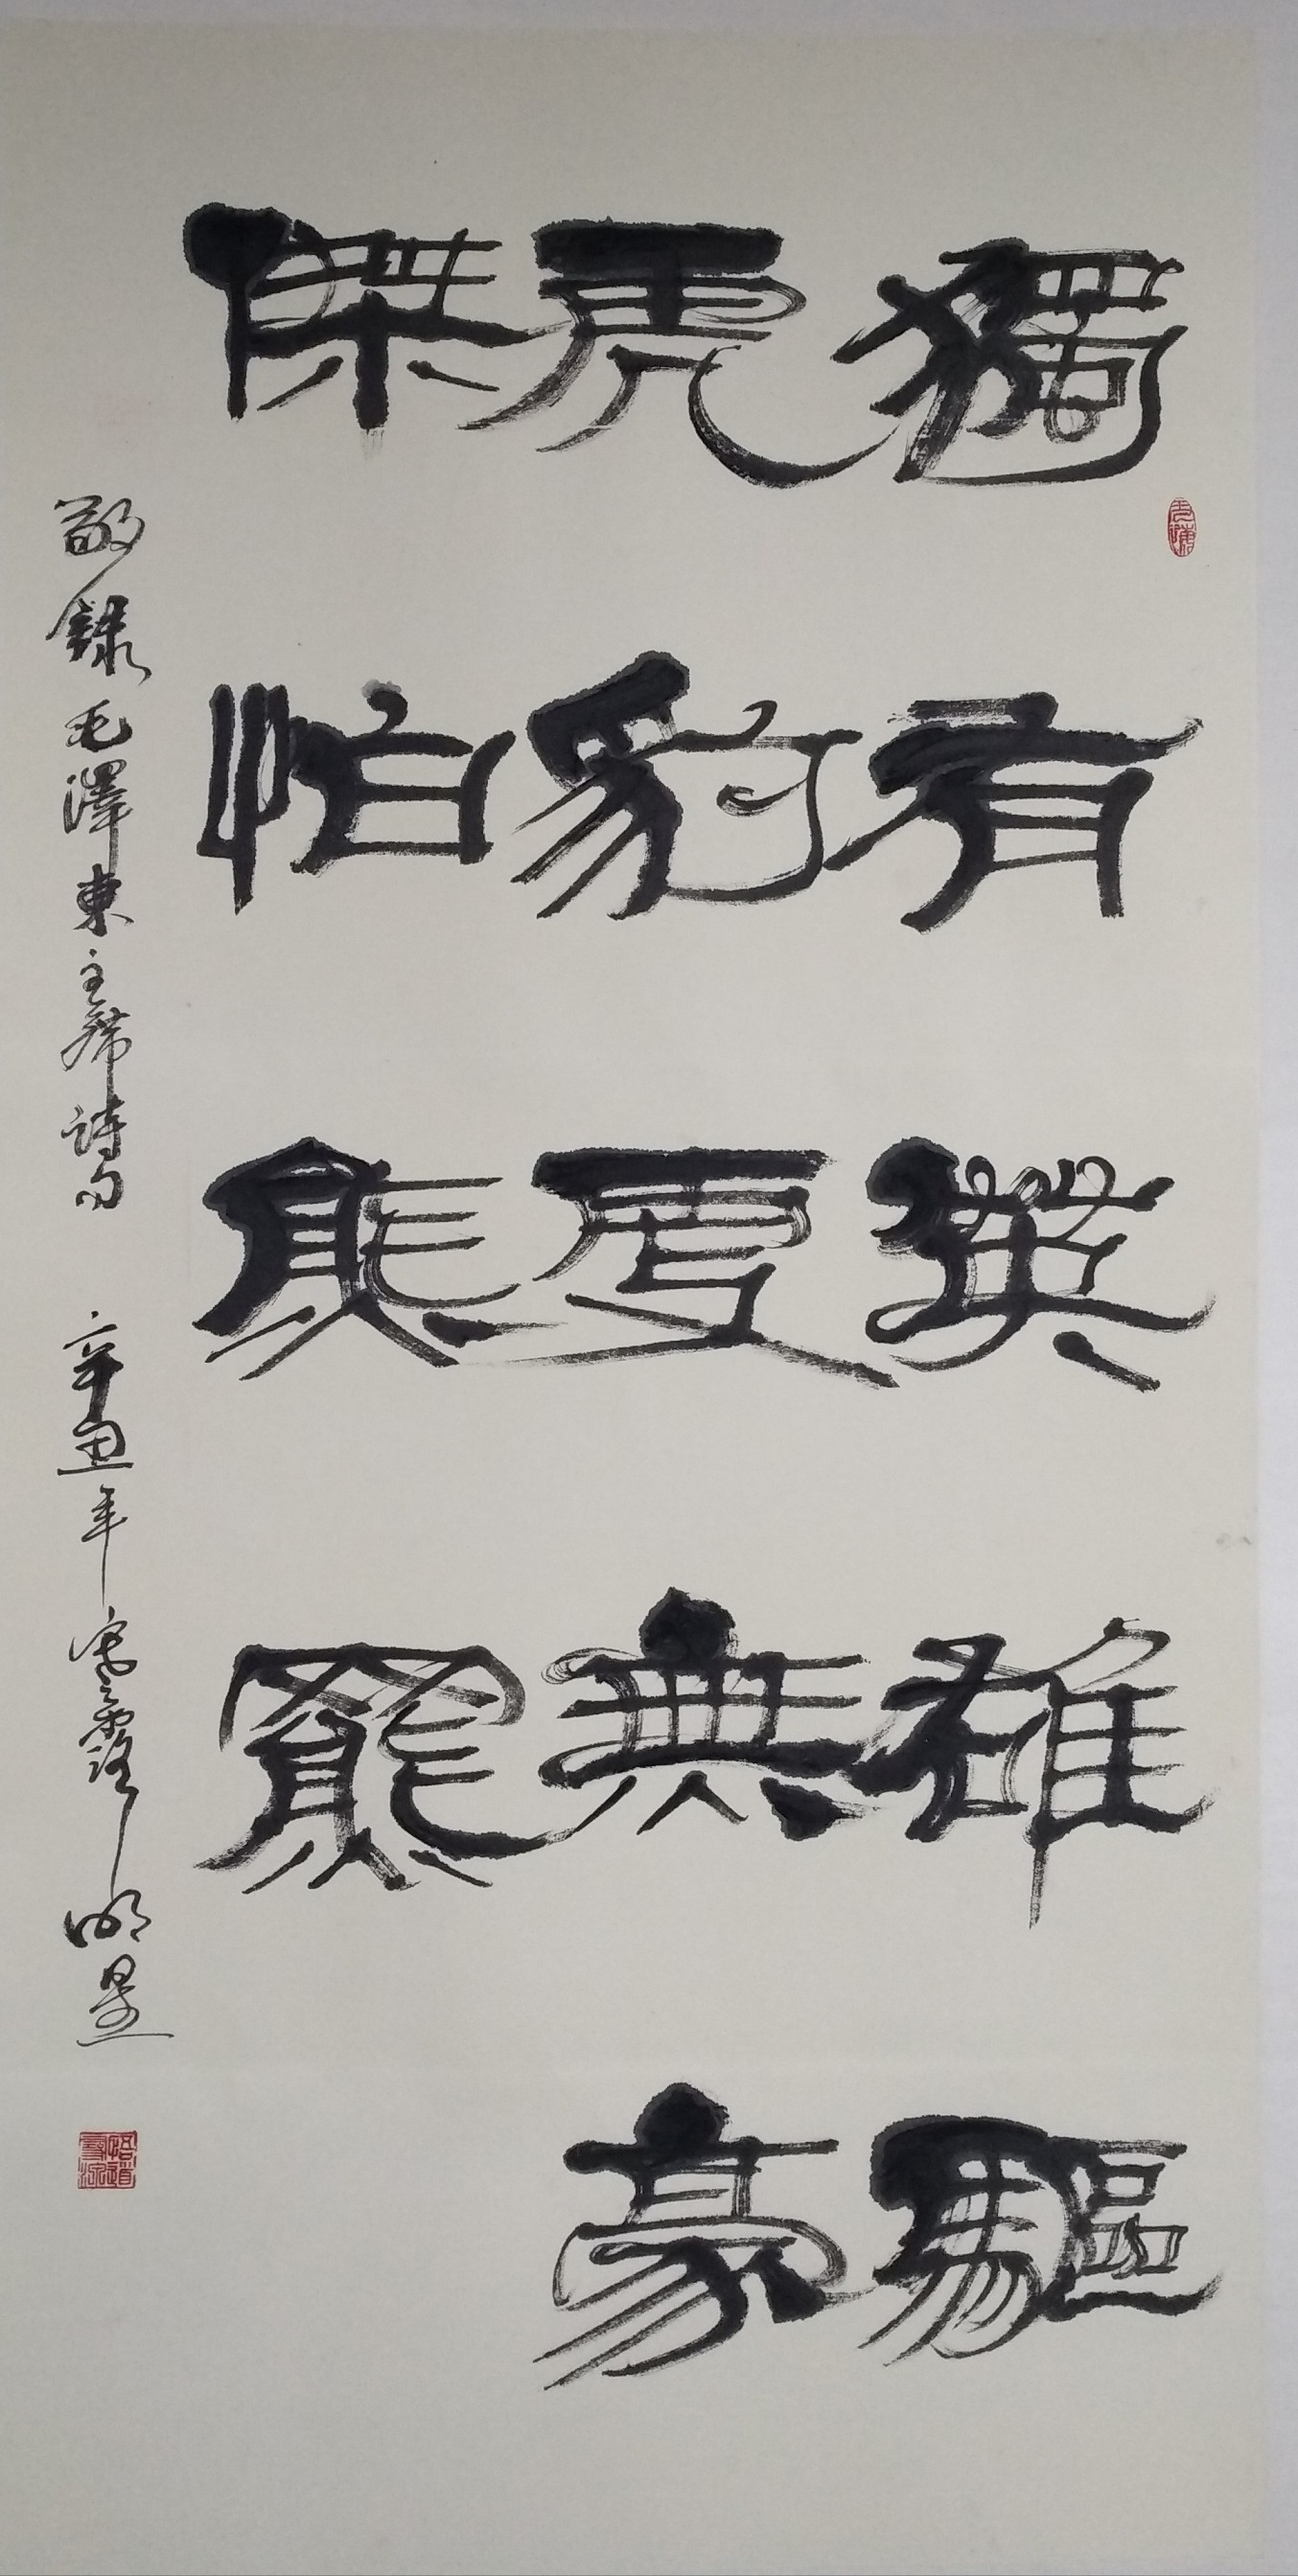 獨有英雄驅
虎豹更無豪
傑怕熊羆
敬錄毛澤東主席詩句 辛丑年寒露